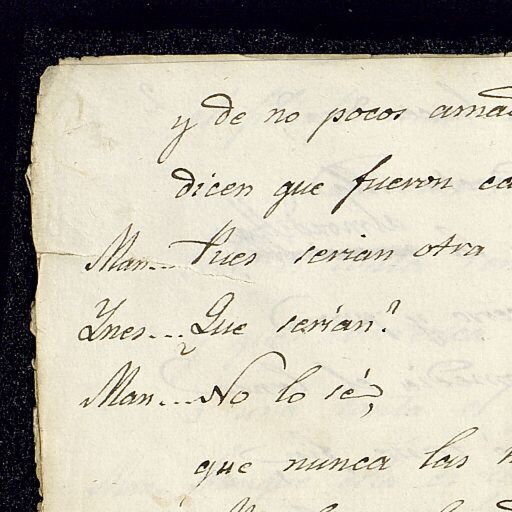 y de no pocos amad
dicen que fueron ca
Man... Pues serian otra
Ynes... ¿Que serían?
Man... No lo sé,
que nunca las